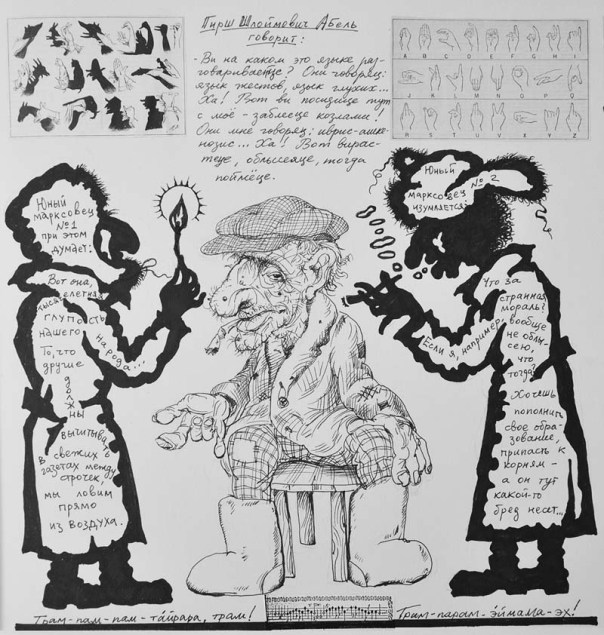 Гирш Шлоймевич Абель
говорит:
- Ви на каком это языке раз-
говариваетце? Они говоряц:
язык жестов, язык глухих...
Ха! Вот ви посидице тут
с моё - заблееце козлами!
Они мне говоряц: иврис-ашке-
нозис... Ха! Вот вирас-
теце, облысеяце, тогда
поймёце.
A B C D E F G H I
J K L M N O P Q
R S T U V X Y Z
Юный
марксовец
№1
при этом
думает:
Вот она,
тысячелетняя
глупость
нашего
народа...
То, что
другие
должны
вычитывать
в свежих
газетах между
строчек,
мы ловим
прямо
из воздуха.
Юный
марксовец №2
изумляется:
Что за
странная
мораль?
Если я, например,
вообще
не облы-
сею, что
тогда?
Хочешь
пополнить
свое обра-
зование,
припасть к
корням -
а он тут
какой-то
бред несёт...
Трам-пам-пам-тайрара, трам!
Трам-парам-эймама-эх!